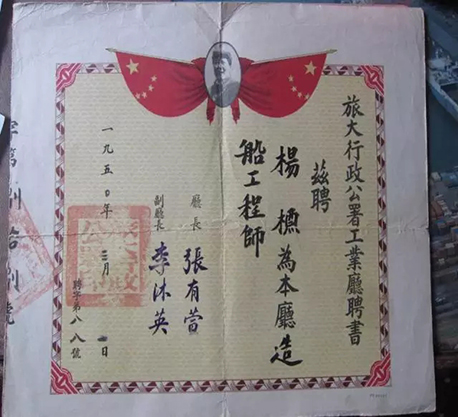 旅大行政公署工業廳聘書
茲聘
楊標為本廳造
船工程師
廳長 張有萱
副廳長 李沐英
一九五〇年三月 日
聘字第八八號